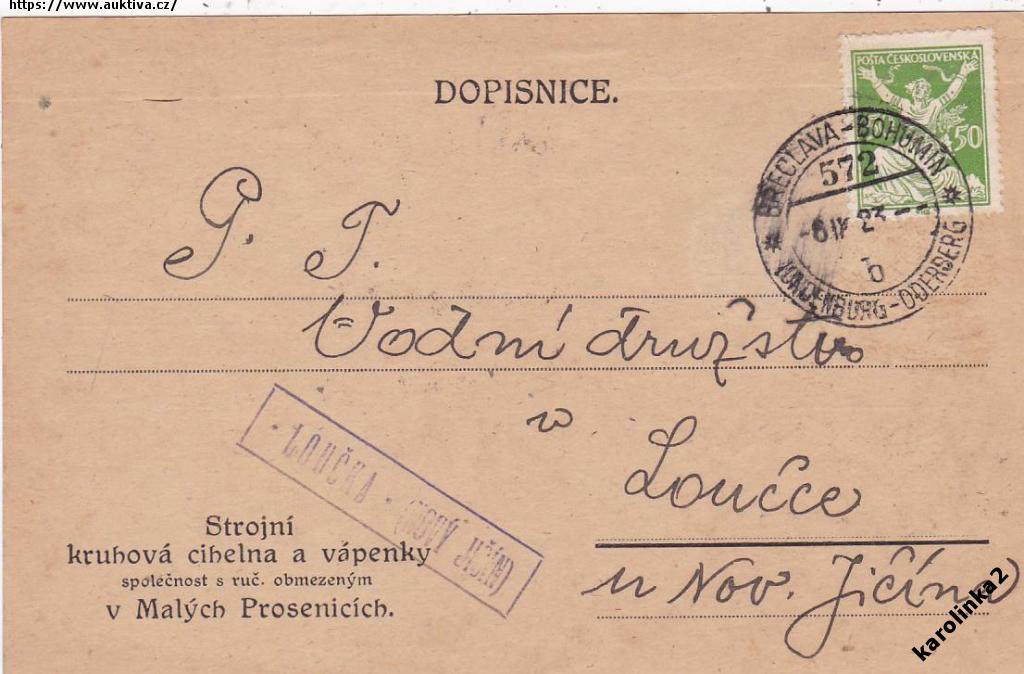 https://www.auktiva.cz/
DOPISNICE.
POŠTA ČESKOSLOVENSKÁ
50
BŘECLAVA-BOHUMÍN
572
-6 IV 23
b
-ODERBERG
P. T.
Vodní družstvo
v Loučce
u Nov. Jičína
LOUČKA - (NOVÝ JIČÍN)
Strojní
kruhová cihelna a vápenky
společnost s ruč. obmezeným
v Malých Prosenicích.
karolinka2